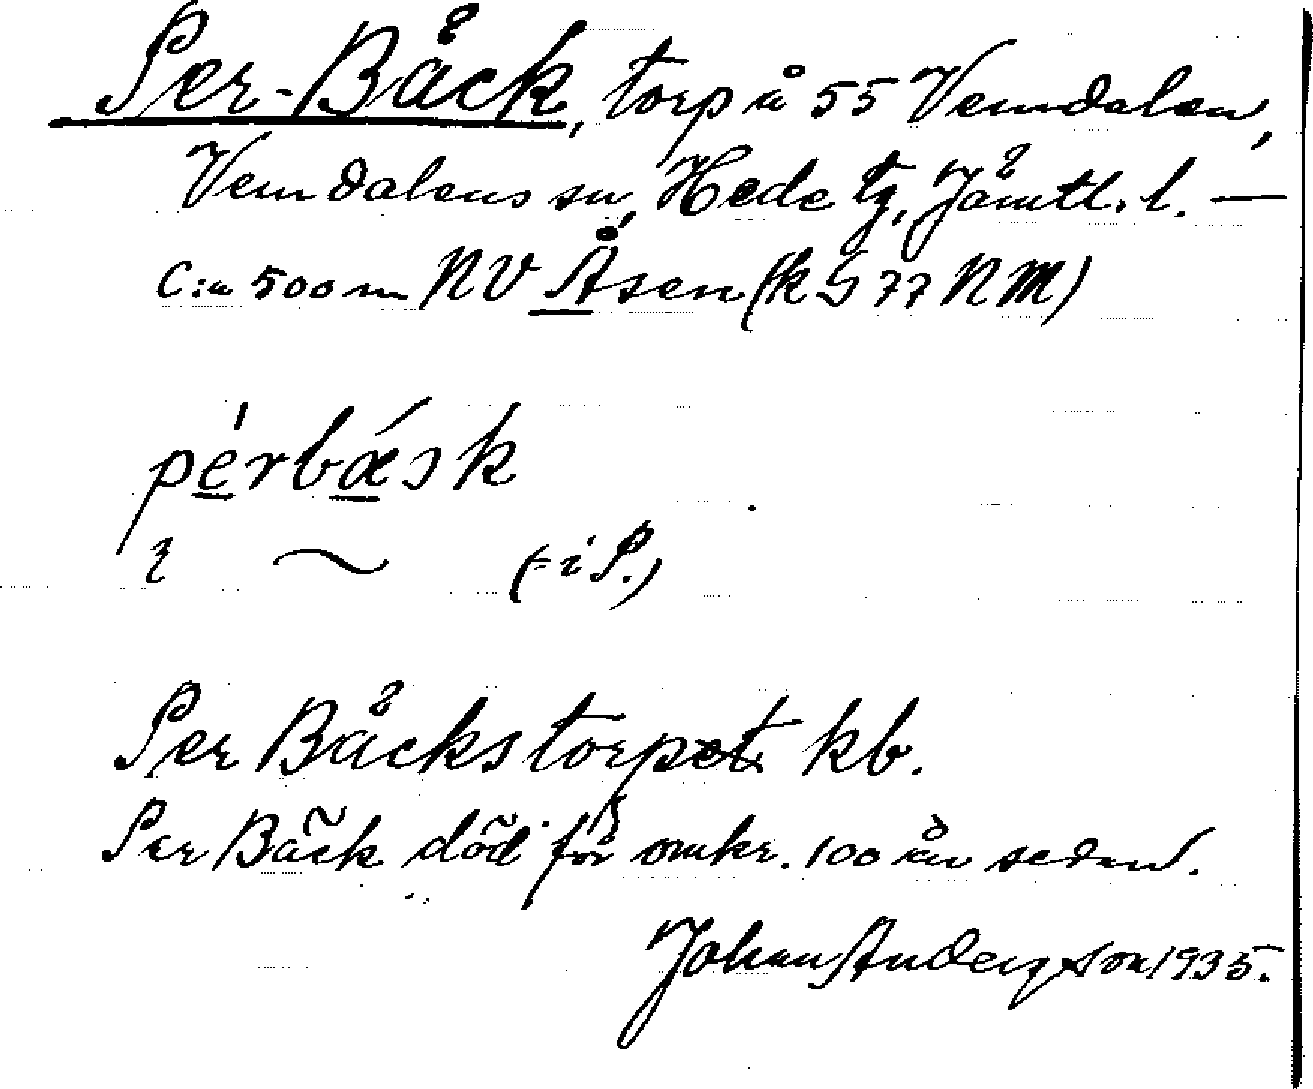 Per-Bäck, torp å 55 Vemdalen,
Vemdalens sn, Hede tg, Jämtl. l. —
C:a 500 m NV Åsen (k S 77 NM)
pérbásk
~ (- i P.)
Per Bäckstorpet kb.
Per Bäck död för omkr. 100 år sedan.
Johan Anderzson 1935.